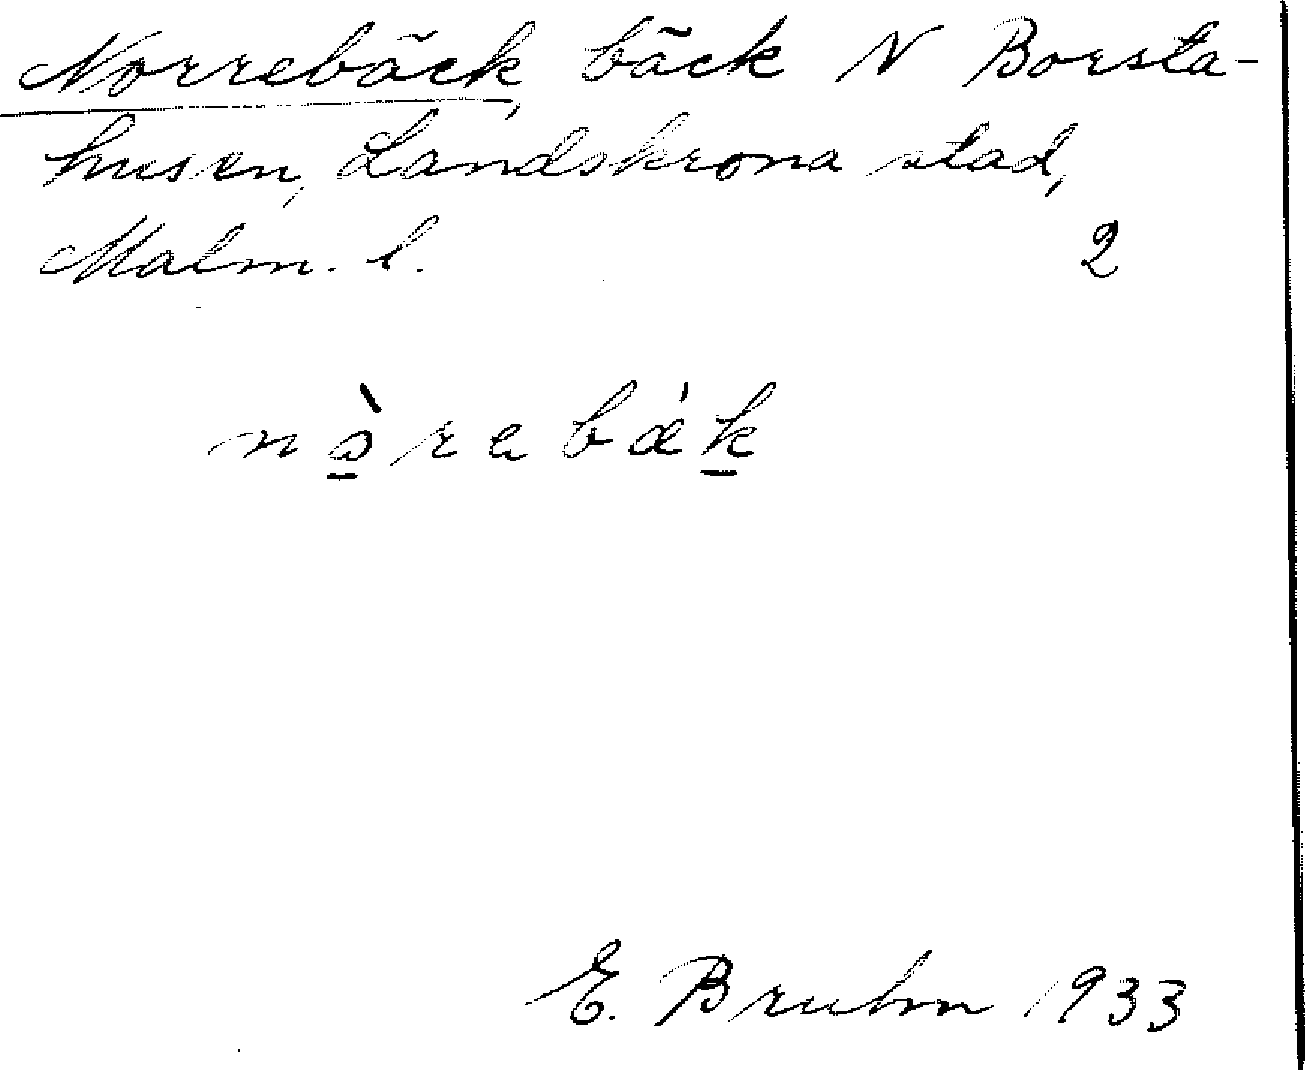 Norrebäck, bäck N Borsta-
husen, Landskrona stad,
Malm. l. 2
nò̱rabǽḵ
E. Bruhn 1933